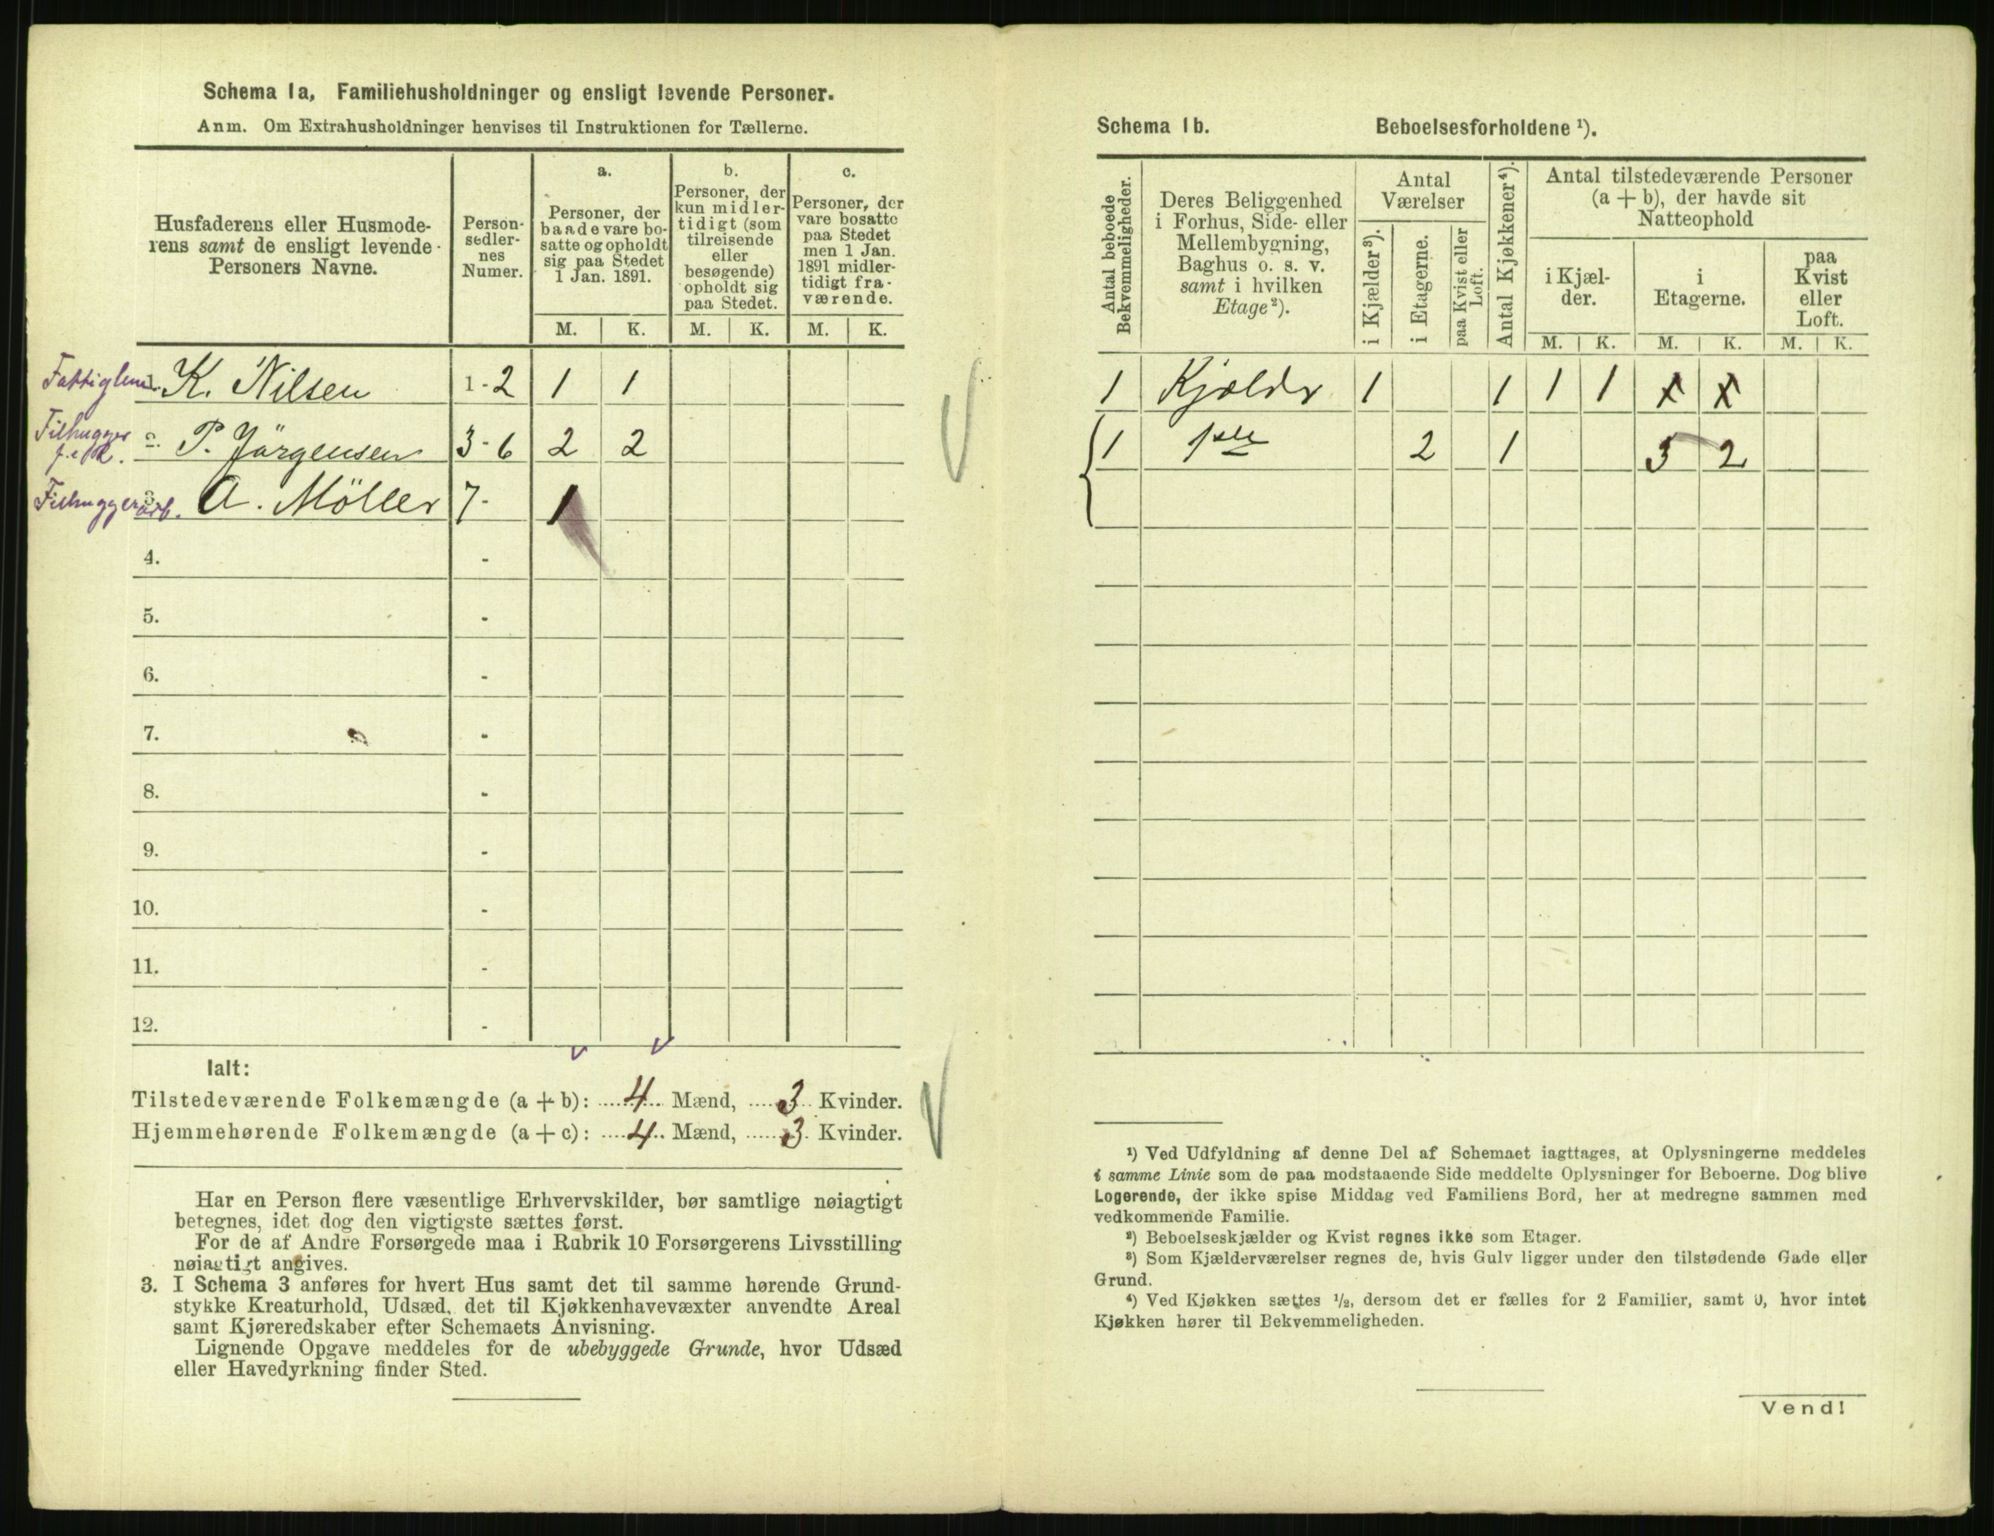 Schema 1a, Familiehusholdninger og ensligt levende Personer.
Anm. Om Extrahusholdninger henvises til Instruktionen for Tællerne.
Husfaderens eller Husmoderens samt de ensligt levende Personers Navne.
Person-sedlernes Numer.
a.
Personer, der baade vare bosatte og opholdt sig paa Stedet 1 Jan. 1891.
b.
Personer, der kun midlertidigt (som tilreisende eller besøgende) opholdt sig paa Stedet.
c.
Personer, der vare bosatte paa Stedet men 1 Jan. 1891 midlertidigt fraværende.
M. K. M. K. M. K.
K. Nilsen 1-2 1 1
Filhugger
P. Jörgensen 3-6 2 2
Filhuggerarb. A. Möller 7- 1
4. -
5. -
6. -
7. -
8. -
9. -
10. -
11. -
12. -
Ialt:
Tilstedeværende Folkemængde (a + b): 4 Mænd, 3 Kvinder.
Hjemmehørende Folkemængde (a + c): 4 Mænd, 3 Kvinder.
Har en Person flere væsentlige Erhvervskilder, bør samtlige nøiagtigt
betegnes, idet dog den vigtigste sættes først.
For de af Andre Forsørgede maa i Rubrik 10 Forsørgerens Livsstilling
nøiagtigt angives.
3. I Schema 3 anføres for hvert Hus samt det til samme hørende Grund-
stykke Kreaturhold, Udsæd, det til Kjøkkenhavevæxter anvendte Areal
samt Kjøreredskaber efter Schemaets Anvisning.
Lignende Opgave meddeles for de ubebyggede Grunde, hvor Udsæd
eller Havedyrkning finder Sted.
Schema 1b. Beboelsesforholdene ¹).
Antal beboede Bekvemmeligheder.
Deres Beliggenhed i Forhus, Side- eller Mellembygning, Baghus o. s. v. samt i hvilken Etage²).
Antal Værelser
i Kjælder³).
i Etagerne.
paa Kvist eller Loft.
Antal Kjøkkener⁴).
Antal tilstedeværende Personer (a + b), der havde sit Natteophold
i Kjælder.
i Etagerne.
paa Kvist eller Loft.
M. K. M. K. M. K.
1 Kjælder 1 1 1 1 x x
1 1ste 2 1 3 2
¹) Ved Udfyldning af denne Del af Schemaet iagttages, at Oplysningerne meddeles
i samme Linie som de paa modstaaende Side meddelte Oplysninger for Beboerne. Dog blive
Logerende, der ikke spise Middag ved Familiens Bord, her at medregne sammen med
vedkommende Familie.
²) Beboelseskjælder og Kvist regnes ikke som Etager.
³) Som Kjælderværelser regnes de, hvis Gulv ligger under den tilstødende Gade eller
Grund.
⁴) Ved Kjøkken sættes ½, dersom det er fælles for 2 Familier, samt 0, hvor intet
Kjøkken hører til Bekvemmeligheden.
Vend!